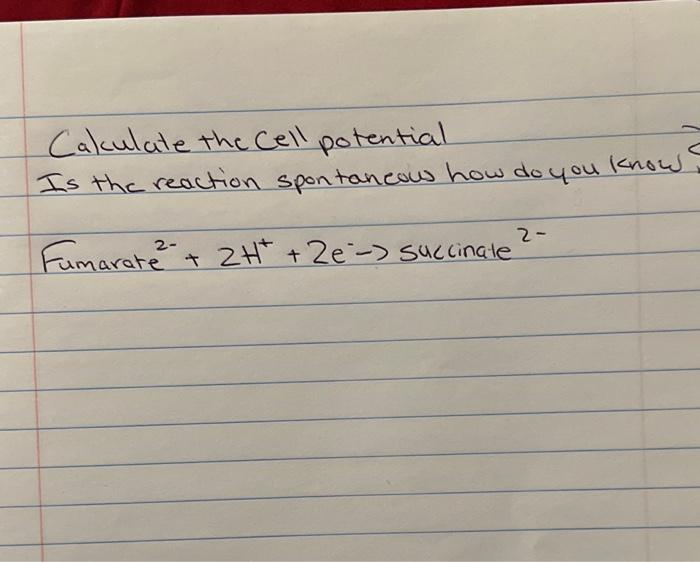 Calculate the Cell potential
Is the reaction spontaneous how do you know?
Fumarate²⁻ + 2H⁺ + 2e⁻ -> succinate²⁻